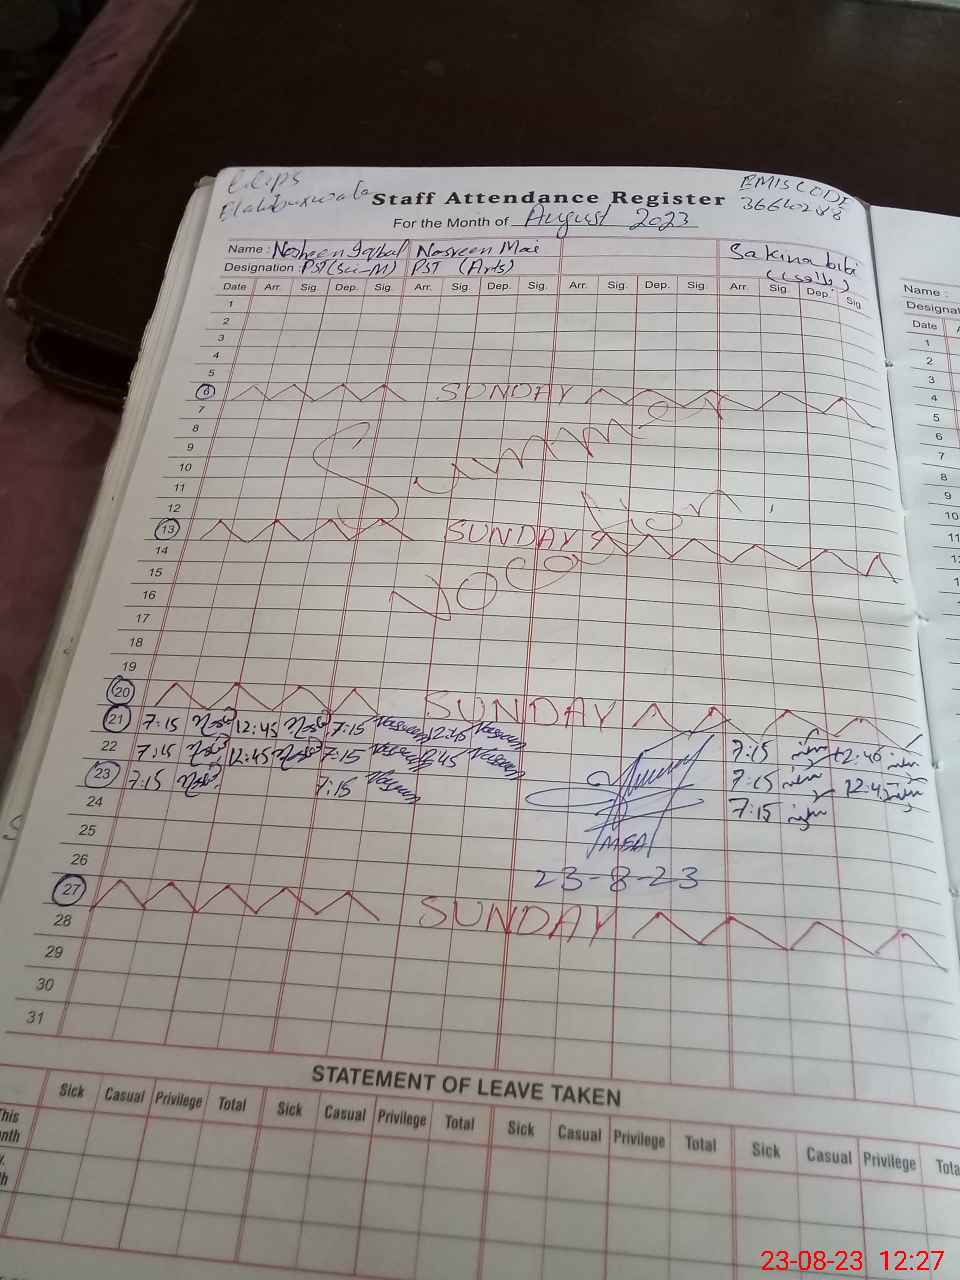 EMISCODE
Staff Attendance Register 36640288
For the Month of August 2023
Name : Nosheen Iqbal Nasreen Mai Sakina bibi
Designation : PST (Sci-M) PST (Arts)
Date Arr. Sig. Dep. Sig. Arr. Sig. Dep. Sig. Arr. Sig. Dep. Sig. Arr. Sig. Dep. Sig
1
2
3
4
5
6 SUNDAY
7
8 Summer
9
10
11
12
13 SUNDAY
14 vacation
15
16
17
18
19
20 SUNDAY
21 7:15 12:45 7:15 Nasreen 12:45 Nasreen 7:15 12:45
22 7:15 12:45 7:15 Nasreen 12:45 Nasreen 7:15 12:45
23 7:15 7:15 Nasreen 7:15
24
25 MEA
26 23-8-23
27 SUNDAY
28
29
30
31
STATEMENT OF LEAVE TAKEN
Sick Casual Privilege Total Sick Casual Privilege Total Sick Casual Privilege Total Sick Casual Privilege Tota
This
nth
Name :
Designat
Date
1
2
3
4
5
6
7
8
9
10
11
23-08-23 12:27